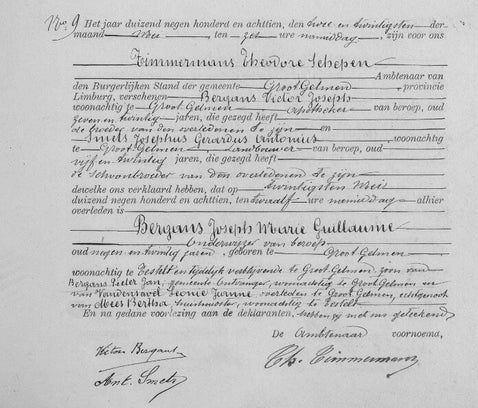 No. 9 Het jaar duizend negen honderd en achttien, den twee en twintigsten der
maand Mei ten zes ure namiddag, zijn voor ons
Timmermans Theodore Schepen
Ambtenaar van
den Burgerlijken Stand der gemeente Groot Gelmen provincie
Limburg, verschenen Bergans Victor Joseph
woonachtig te Groot Gelmen van beroep, oud
zeven en twintig jaren, die gezegd heeft
de broeder van den overledenen te zijn en
Smets Josephus Gerardus Antonius woonachtig
te Groot Gelmen Landbouwer van beroep, oud
vijf en twintig jaren, die gezegd heeft
de schoonbroeder van den overledenen te zijn
dewelke ons verklaard hebben, dat op twintigsten Mei
duizend negen honderd en achttien, ten twaalf ure namiddag alhier
overleden is
Bergans Joseph Marie Guillaume
Onderwijzer van beroep
oud negen en twintig jaren, geboren te Groot Gelmen
woonachtig te en tijdelijk verblijvende te Groot Gelmen, zoon van
Bergans Jan, gemeente Ontvanger, woonachtig te Groot Gelmen en
van Leonie overleden te Groot Gelmen, echtgenoot
van Bertha, woonachtig te
En na gedane voorlezing aan de deklaranten, hebben zij met ons geteekend
De Ambtenaar voornoemd,
Victor Bergans
Th. Timmermans
Ant. Smets